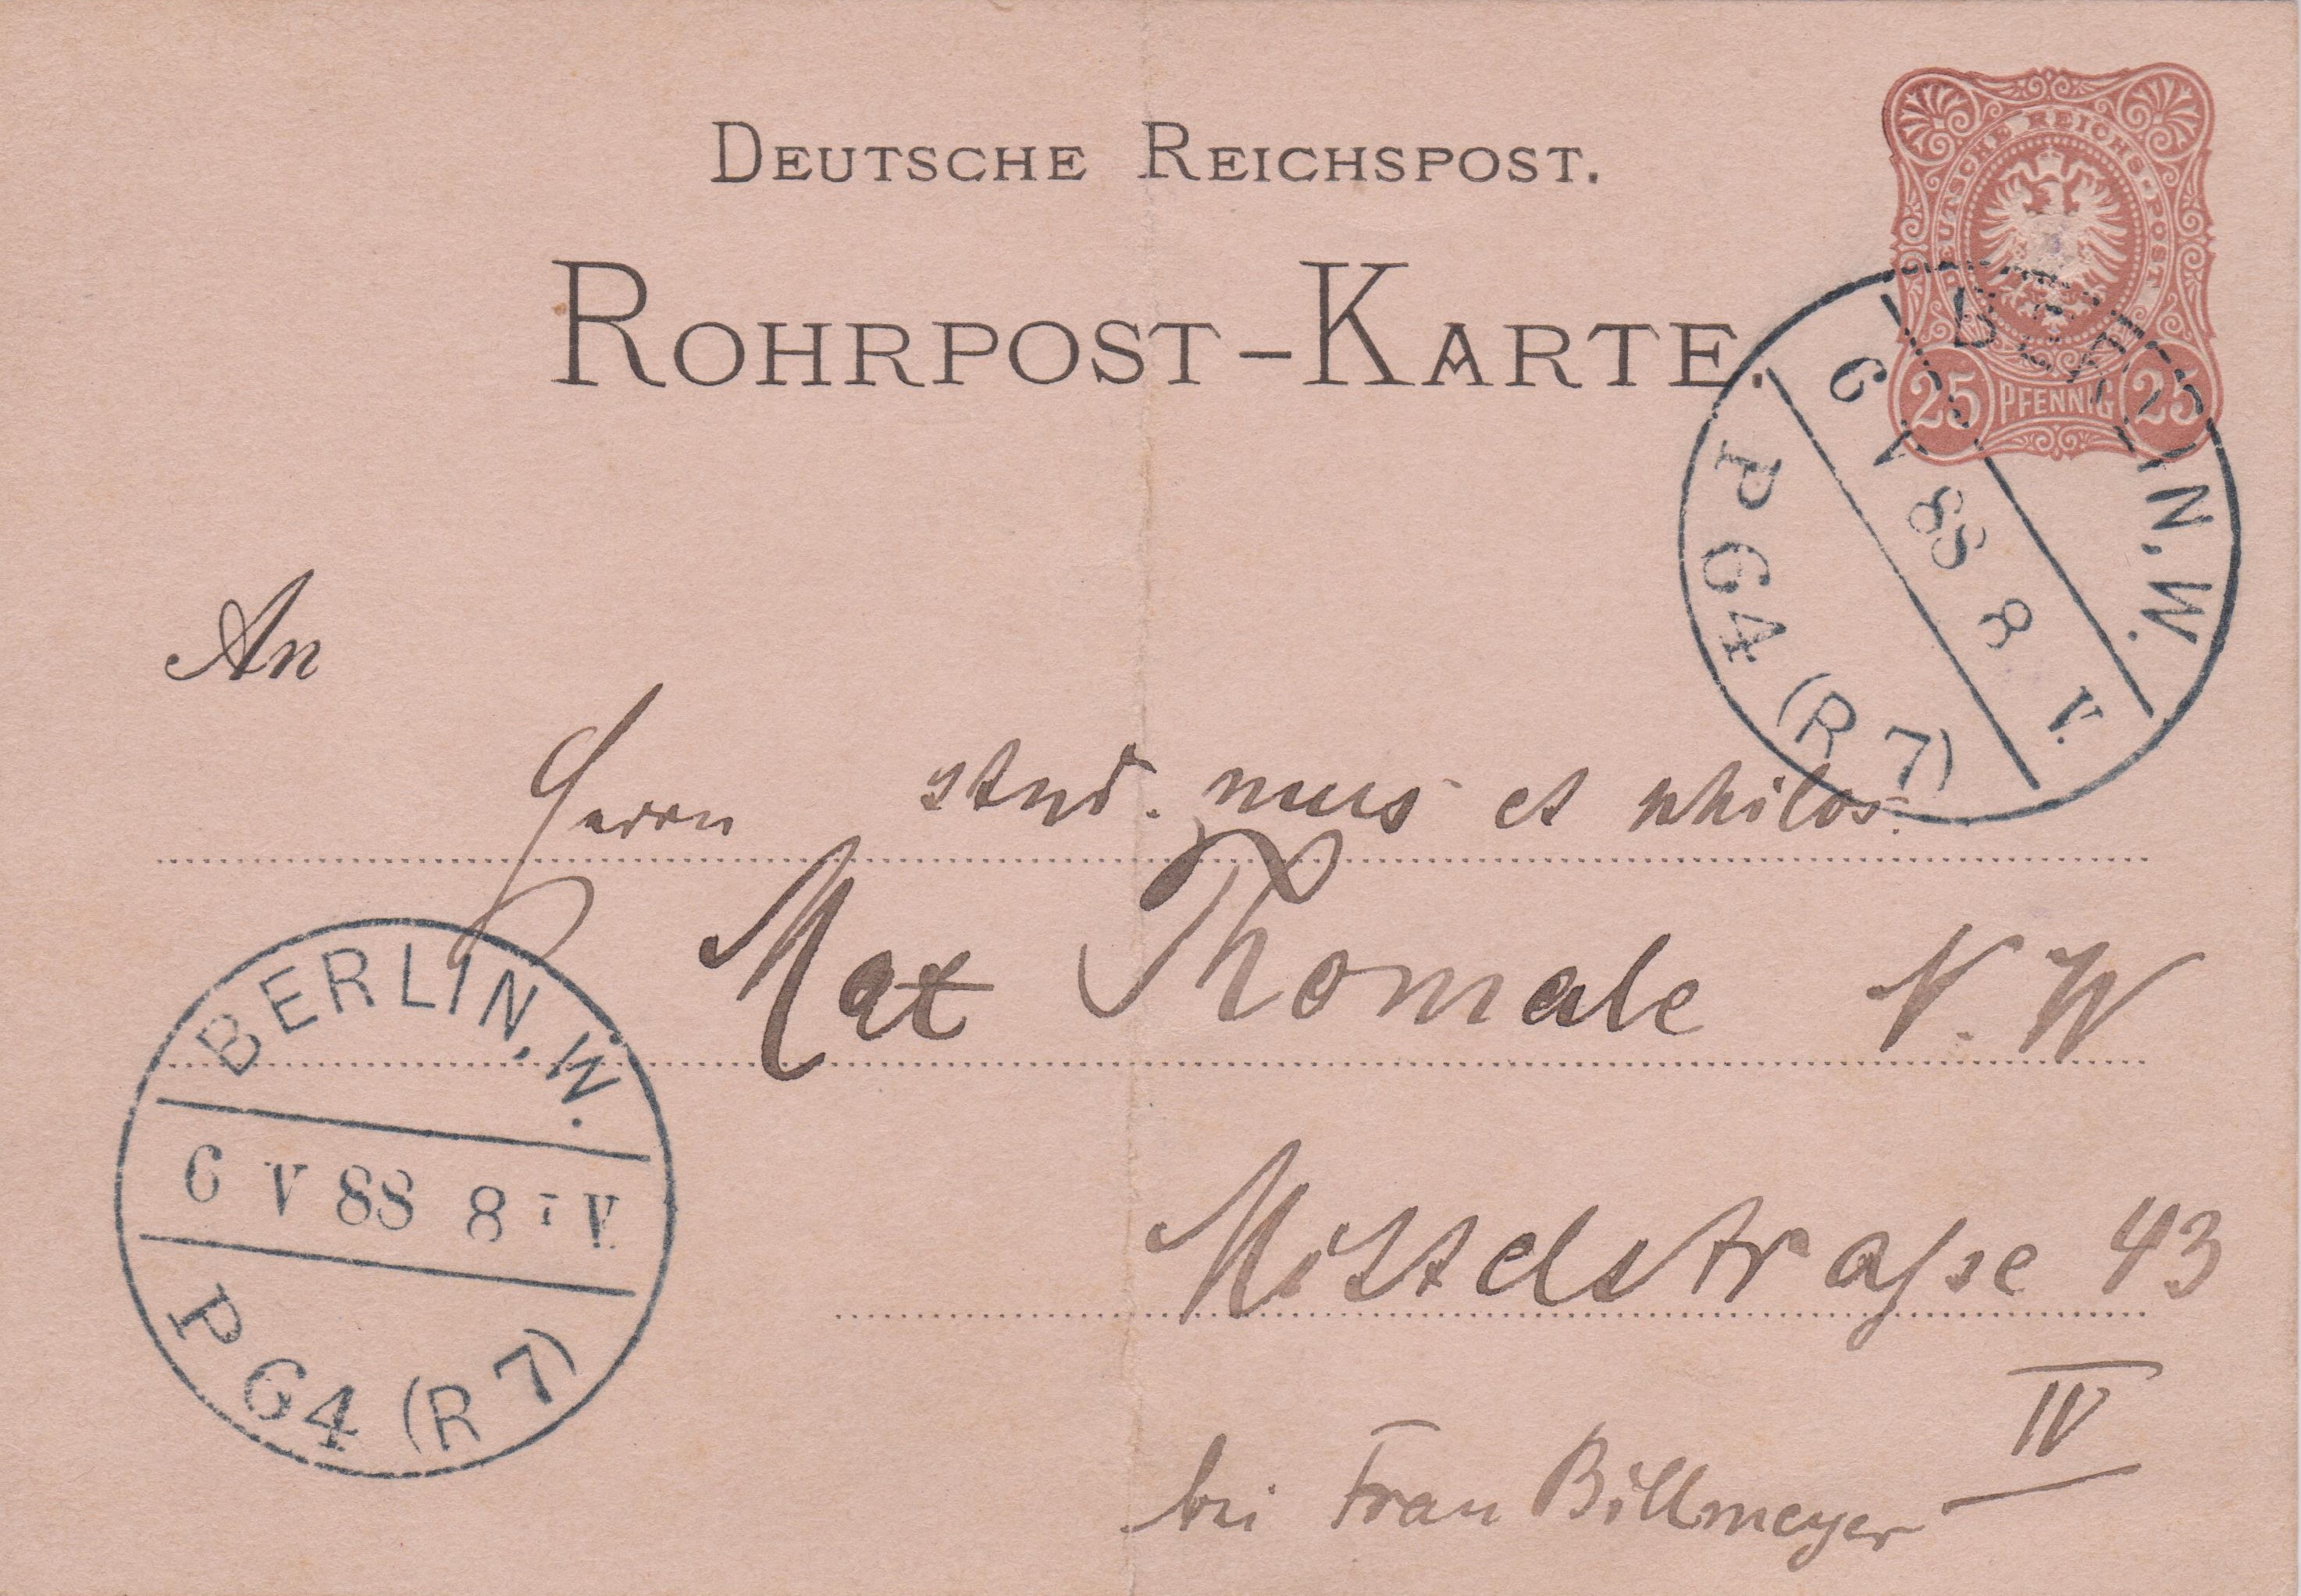 DEUTSCHE REICHSPOST.
ROHRPOST-KARTE.
DEUTSCHE REICHS-POST
25 PFENNIG 25
BERLIN, W.
6 V 88 8 V.
P 64 (R 7)
An
Herrn stud. mus et philos.
Max Thomale N. W
Mittelstraße 43
IV
bei Frau Billmeyer
BERLIN, W.
6 V 88 8 V.
P 64 (R 7)